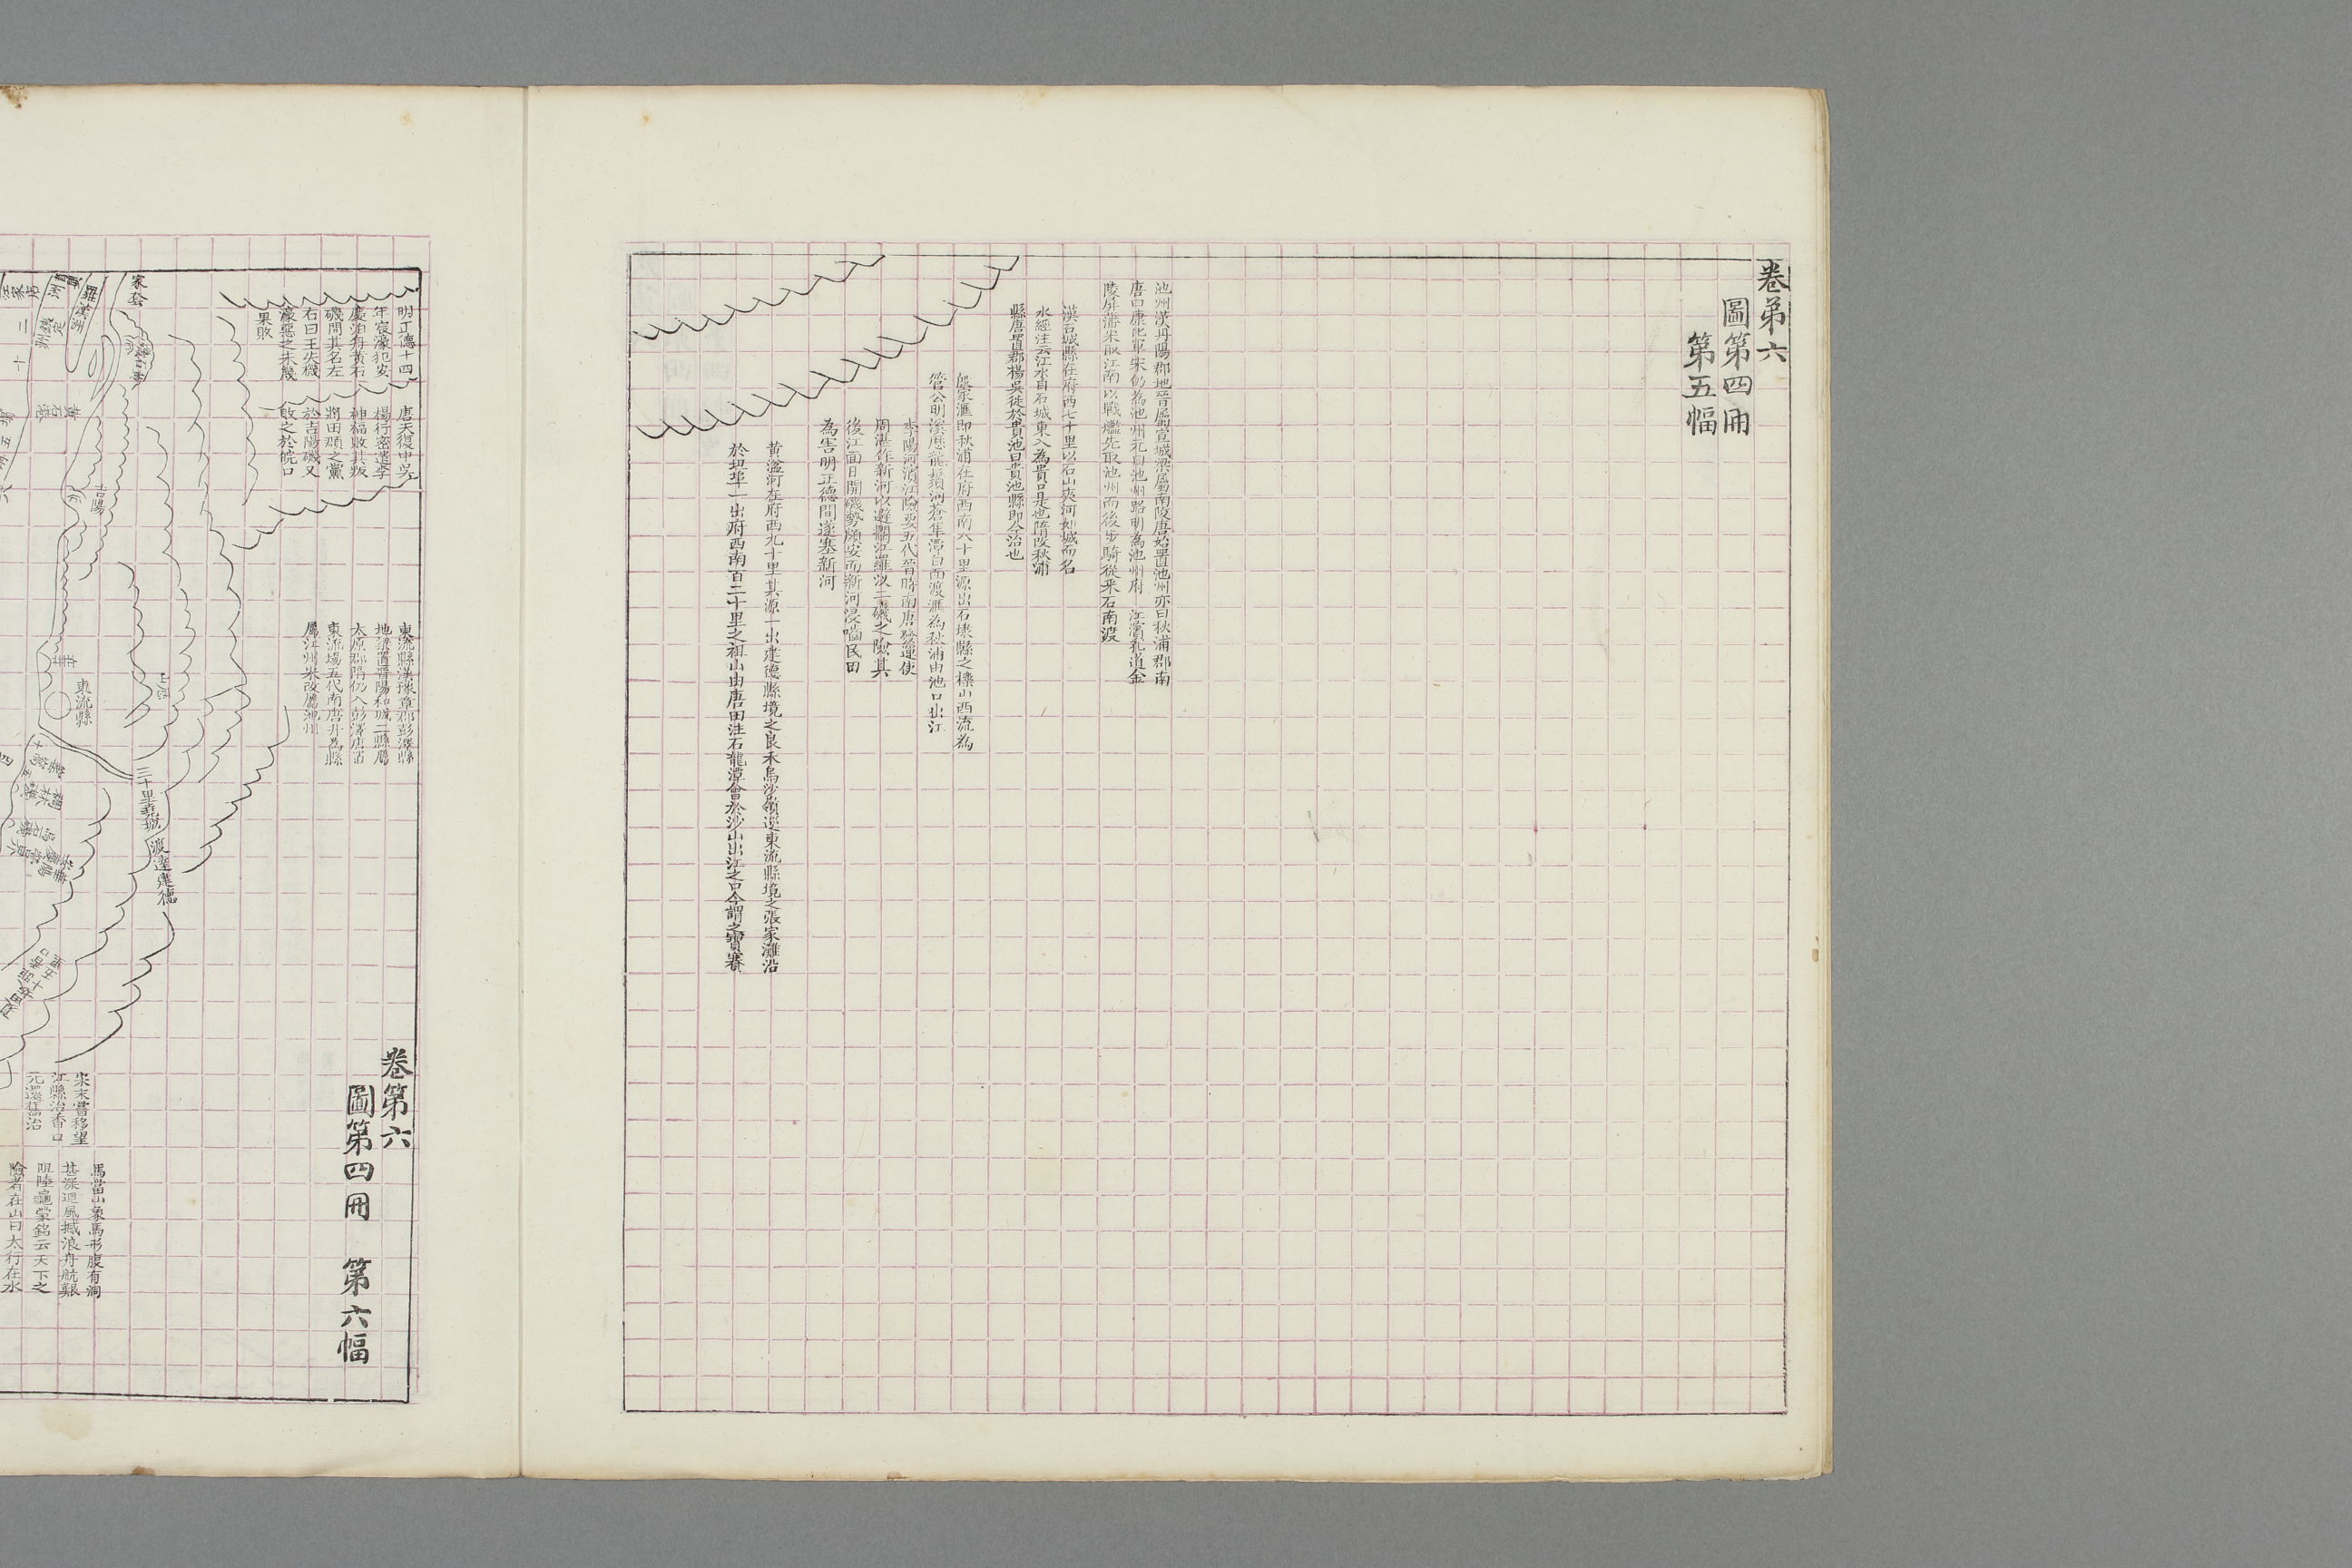 卷第六
圖第四冊
第五幅
池州漢丹陽郡地晉屬宣城梁屬南陵唐始置池州亦曰秋浦郡南
唐曰康化軍宋仍為池州元曰池州路明為池州府 江濱孔道金
陵屏藩宋取江南以戰艦先取池州而後步騎從采石南渡
漢石城縣在府西七十里以石山夾河如城而名
水經注云江水自石城東入為貴口是也隋改秋浦
縣唐置郡楊吳徙於貴池曰貴池縣即今治也
滙即秋浦在府西南六十里源出石埭縣之櫟山西流為
管公明溪歷龍鬚河蒼隼潭白面渡滙為秋浦由池口出江
李陽河濱江險要五代晉時南唐發運使
周湛作新河以避攔江羅汊二磯之險其
後江面日開磯勢頗安而新河浸嚙民田
為害明正德間遂塞新河
黃湓河在府西九十里其源一出建德縣境之良禾烏沙嶺逕東流縣境之張家灘沿
於坦埠一出府西南百二十里之祖山由唐田注石龍潭會於沙山出江之口今謂之寶賽
明正德十四
年宸濠犯安
慶泊舟黃石
磯問其名左
右曰王失機
濠惡之未幾
果敗
唐天復中吳
楊行密遣李
神福敗其叛
將田頵之黨
於吉陽磯又
敗之於皖口
東流縣漢豫章郡彭澤縣
地梁置晉陽和城二縣屬
太原郡隋仍入彭澤唐置
東流場五代南唐升為縣
屬江州宋改屬池州
卷第六
圖第四冊 第六幅
家套
羅漢洲
吉陽
東流縣
三十里堯城
渡達建德
宋末嘗移望
江縣治香口
元還舊治
馬當山象馬形腹有洞
甚深迴風撼浪舟航艱
阻陸龜蒙銘云天下之
險者在山曰太行在水